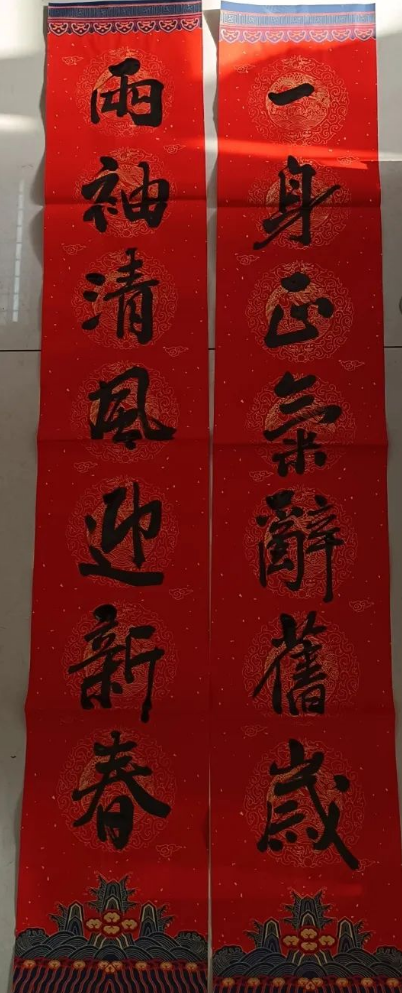 一身正氣辭舊歲
兩袖清風迎新春